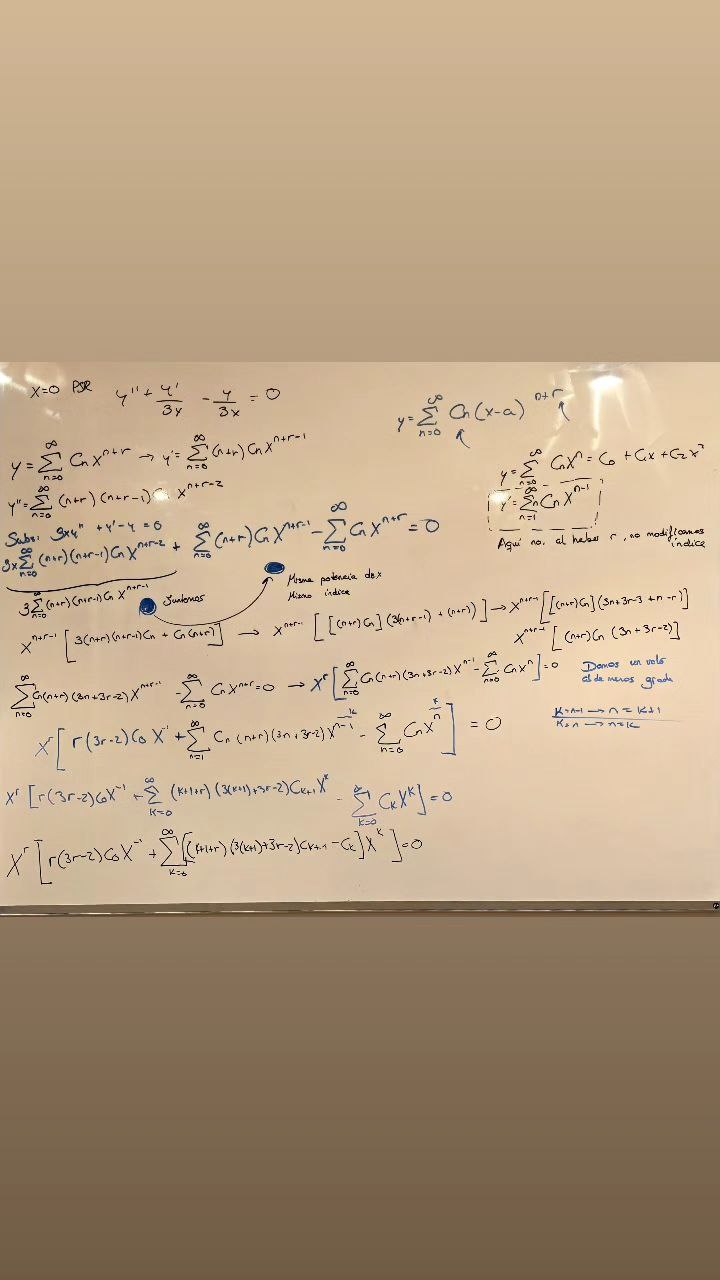 x=0 PSR y'' + y'/3x - y/3x = 0
y = ∑_{n=0}^{∞} Cn(x-a)^{n+r}
y = ∑_{n=0}^{∞} Cn x^{n+r} → y' = ∑_{n=0}^{∞} (n+r) Cn x^{n+r-1}
y = ∑_{n=0}^{∞} Cn x^n = C0 + C1x + C2x^2
y'' = ∑_{n=0}^{∞} (n+r)(n+r-1) Cn x^{n+r-2}
y' = ∑_{n=1}^{∞} n Cn x^{n-1}
Aquí no, al haber r, no modificamos índice
Subs: 3xy'' + y' - y = 0
3x ∑_{n=0}^{∞} (n+r)(n+r-1) Cn x^{n+r-2} + ∑_{n=0}^{∞} (n+r) Cn x^{n+r-1} - ∑_{n=0}^{∞} Cn x^{n+r} = 0
3∑_{n=0}^{∞} (n+r)(n+r-1) Cn x^{n+r-1} Juntamos
Misma potencia de x
Mismo índice
x^{n+r-1} [3(n+r)(n+r-1)Cn + Cn(n+r)] → x^{n+r-1} [[(n+r)Cn](3(n+r-1) + (n+r))] → x^{n+r-1} [[(n+r)Cn](3n+3r-3+n-r)]
x^{n+r-1} [(n+r)Cn (3n+3r-2)]
∑_{n=0}^{∞} Cn(n+r)(3n+3r-2)x^{n+r-1} - ∑_{n=0}^{∞} Cn x^{n+r} = 0 → x^r [∑_{n=0}^{∞} Cn(n+r)(3n+3r-2)x^{n-1} - ∑_{n=0}^{∞} Cn x^n] = 0
Damos un valor
al de menos grado
x^r [r(3r-2)C0 x^{-1} + ∑_{n=1}^{∞} Cn(n+r)(3n+3r-2)x^{n-1} - ∑_{n=0}^{∞} Cn x^n] = 0
K=n-1 → n=k+1
K=n → n=k
x^r [r(3r-2)C0x^{-1} + ∑_{k=0}^{∞} (k+1+r)(3(k+1)+3r-2)C_{k+1}x^k - ∑_{k=0}^{∞} Ck x^k] = 0
x^r [r(3r-2)C0 x^{-1} + ∑_{k=0}^{∞} [(k+1+r)(3(k+1)+3r-2)C_{k+1} - Ck] x^k] = 0